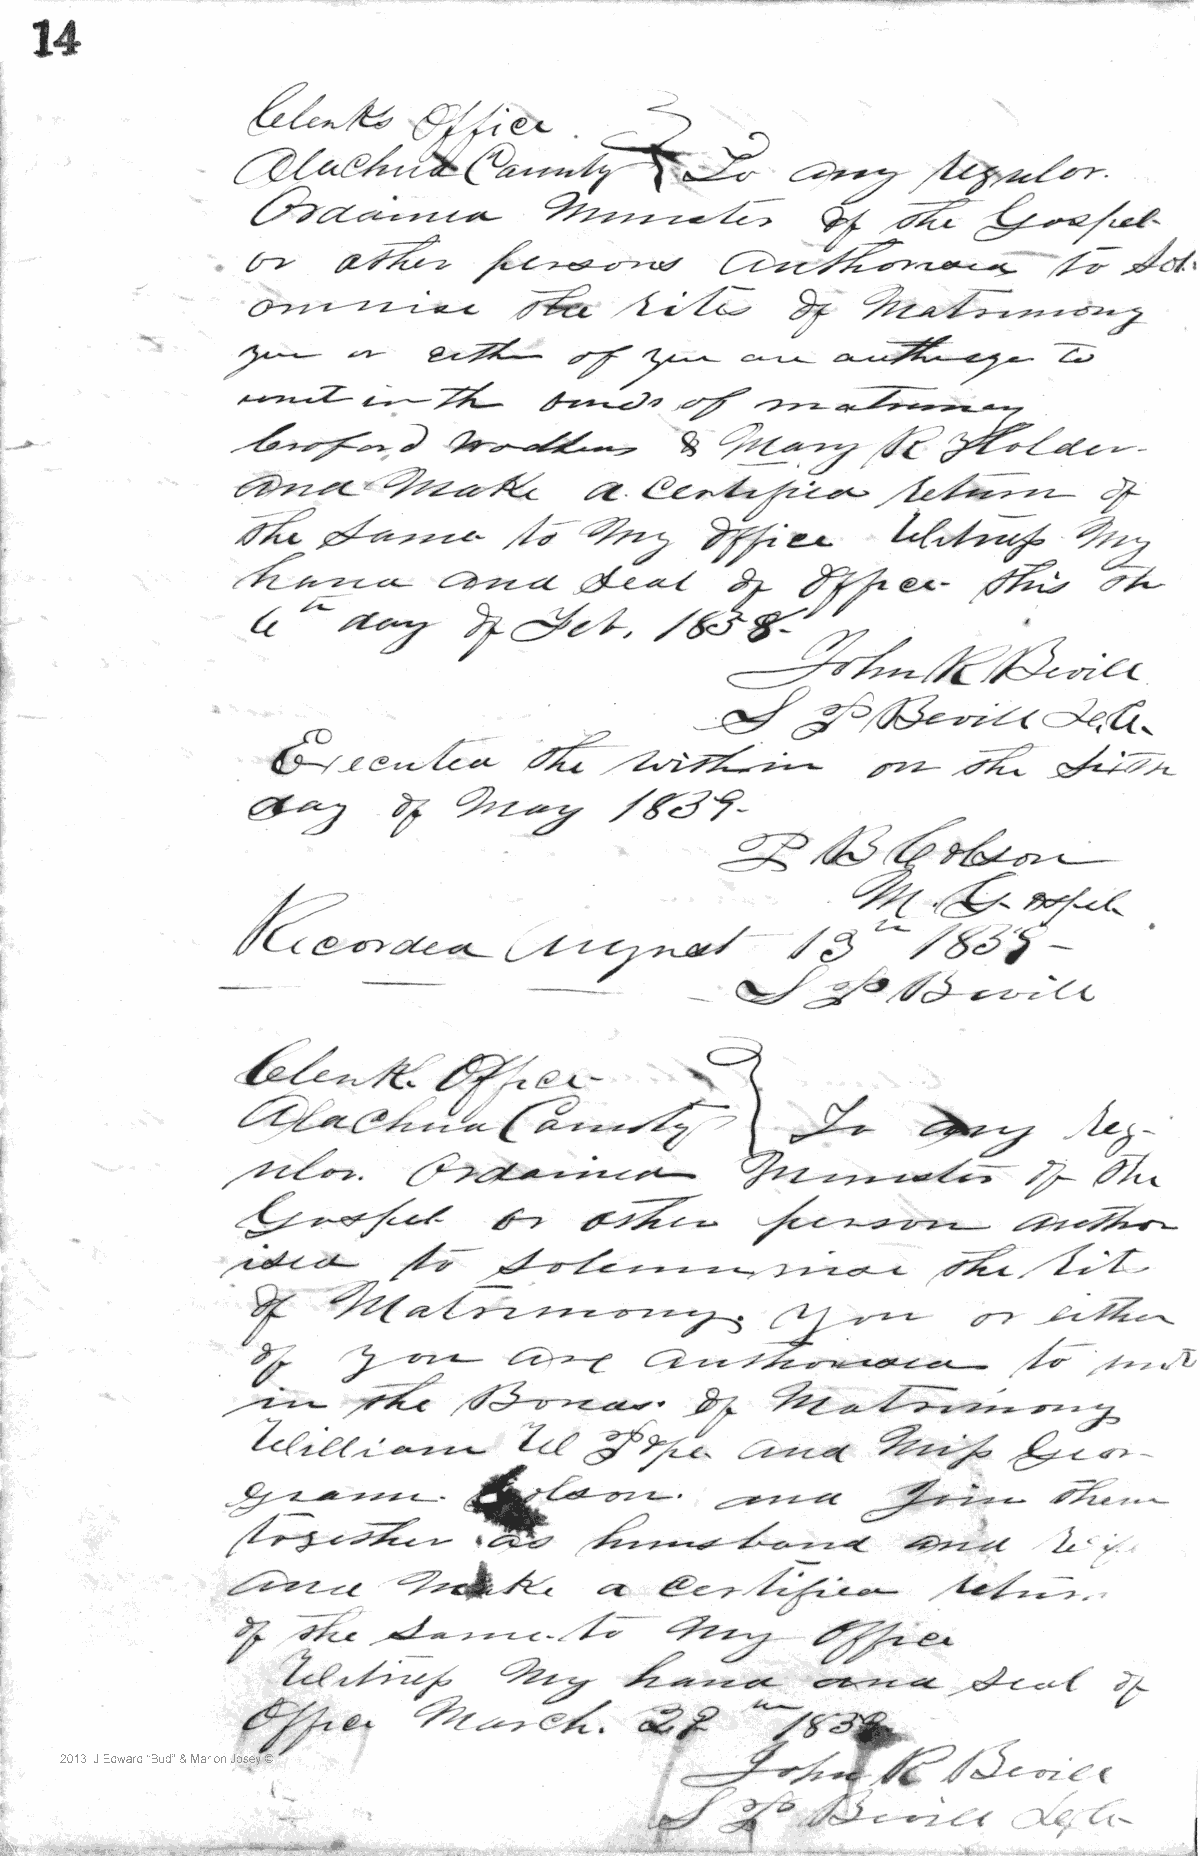 14
Clerks Office
Alachua County } To any regular
Ordained Minister of the Gospel
or other persons Authorised to Sol-
omnise the rites of Matrimony
you or either of you are authorize to
unit in th bonds of matrimony
Croford & Mary R Holder
and Make a Certified return of
the Same to My Office Witness My
hand and Seal of Office this th
6th day of Feb. 1838
John R Bevill
S P Bevill
Executed the within on the Sixth
day of May 1839
P B Colson
M. Gospel
Recorded August 13th 1839
S P Bevill
Clerk Office
Alachua County } To any Reg-
ular Ordained Minister of the
Gospel or other person author
ised to Solemnise the Rit
of Matrimony. you or either
of you are Authorised to unit
in the Bonds of Matrimony
William W Pope and Miss Geor-
giann Colson and Join them
together as husband and Wife
and Make a Certified return
of the Same to My Office
Witness My hand and Seal of
Office March. 1839
2013 J Edward "Bud" & Marion Josey ©
John R Bevill
S P Bevill